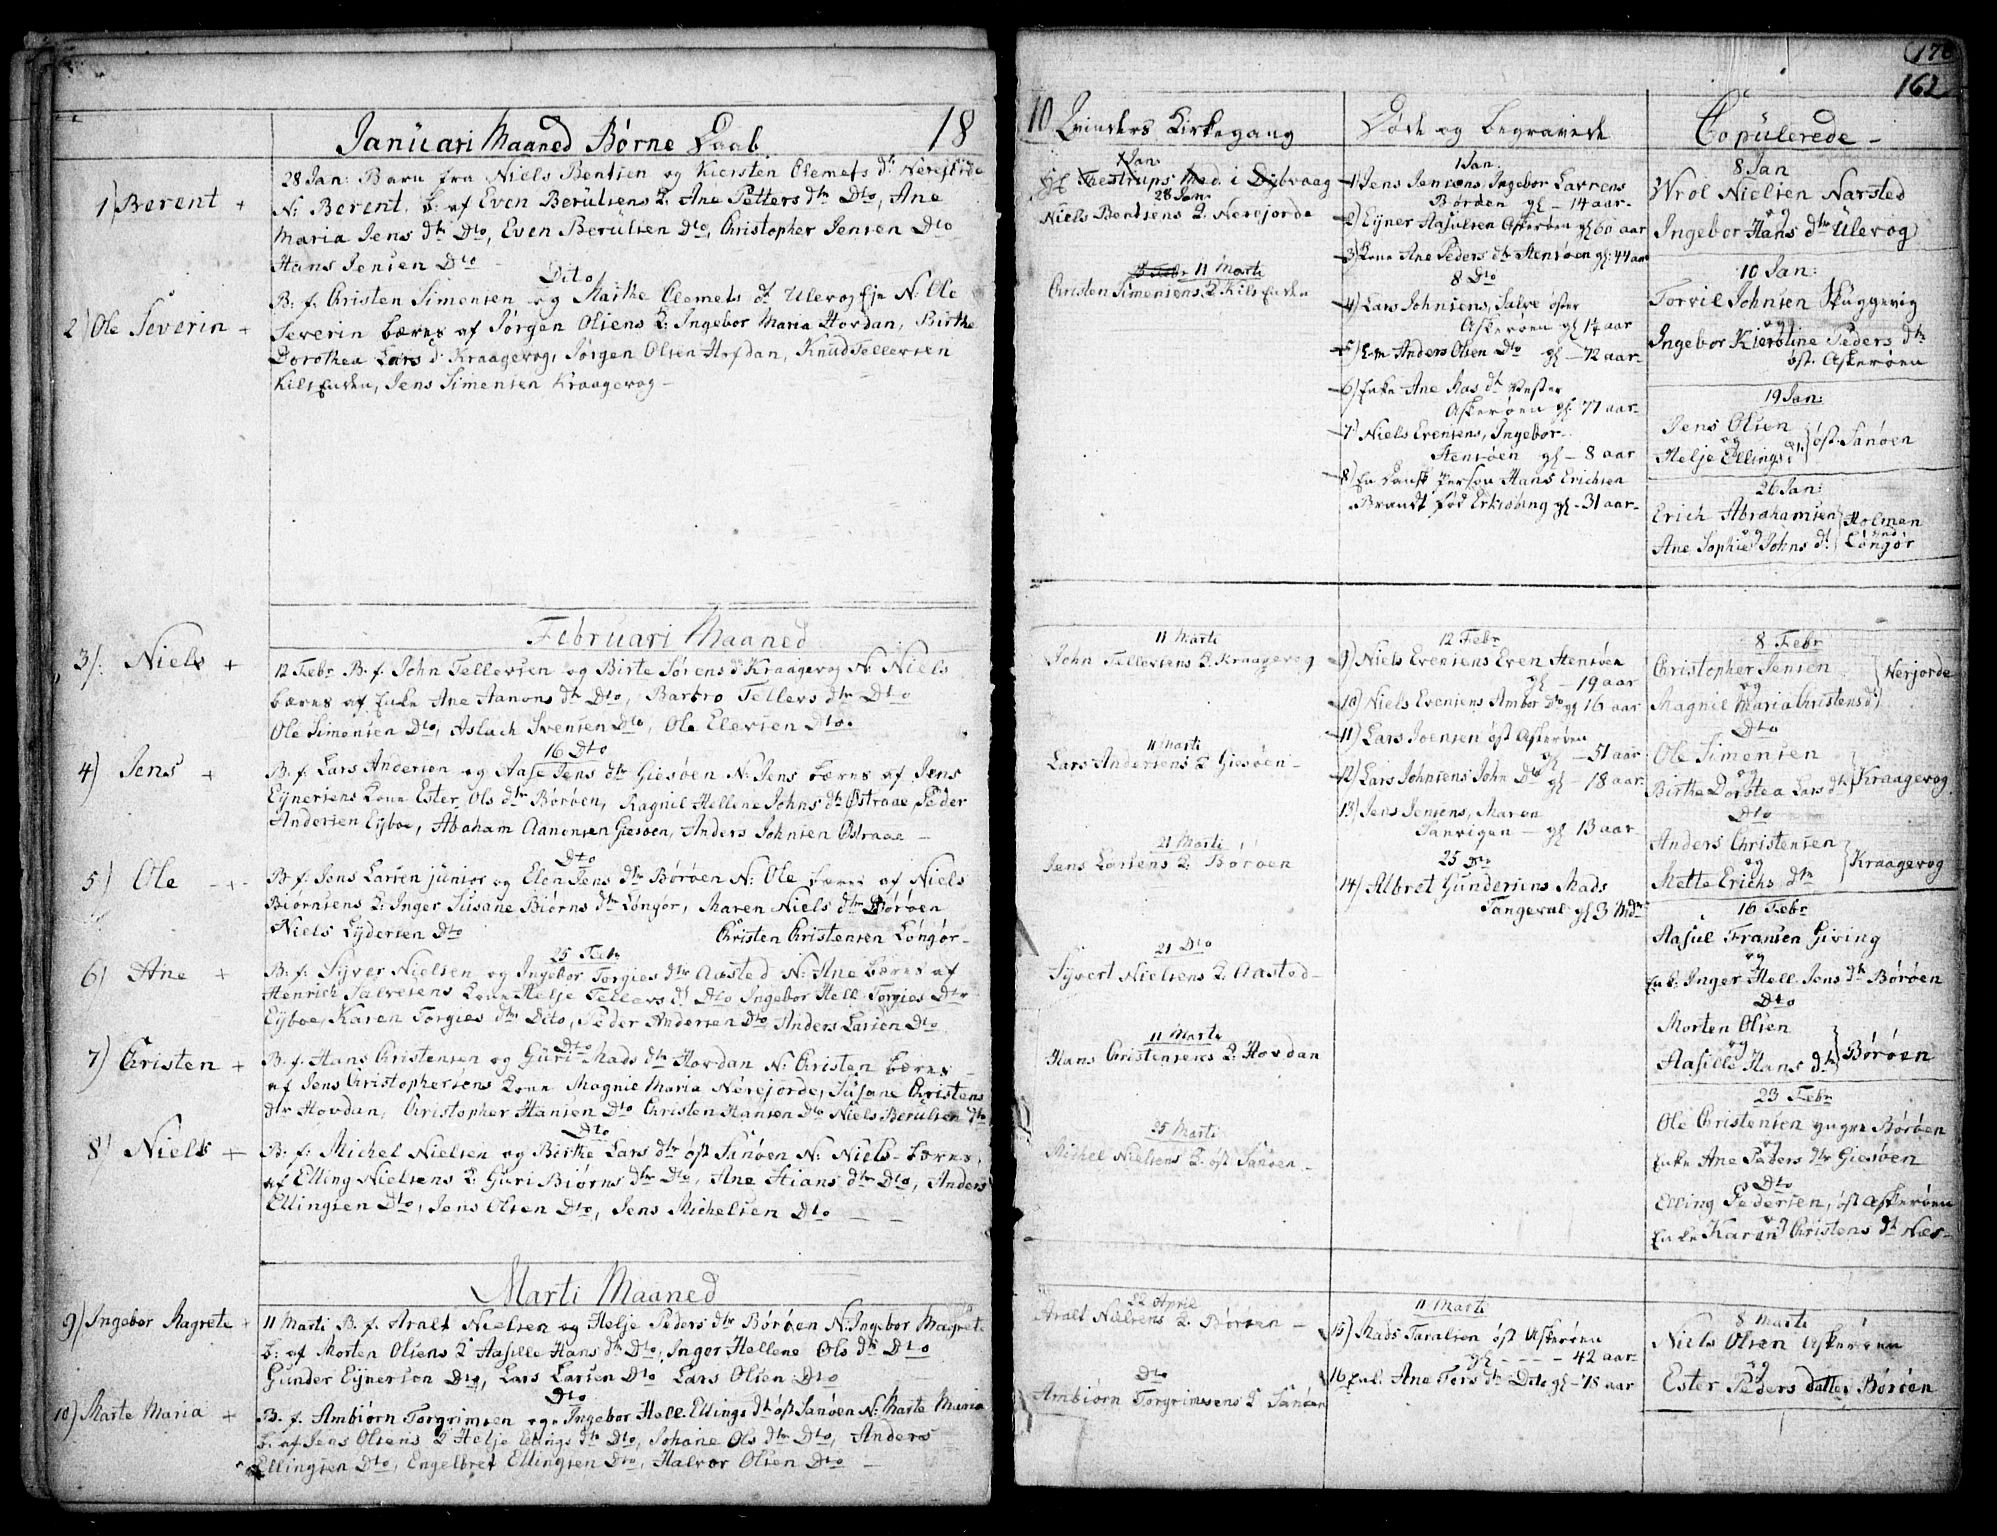 Januari Maaned Børne Daab 18
1) Berent +
28 Jan: Barn fra Niels Bentsen og Kiersten Clemets dr Nerejorde
N: Berent. b: af Even Berulsens K. Ane Petters dtr Dto, Ane
Maria Jens dtr Dto, Even Berulsen Dto, Christopher Jensen Dto
Hans Jensen Dto
Dito
2) Ole Severin +
B: f. Christen Simensen og Marthe Clemets dr Ulevog Eje N: Ole
Severin bæres af Jørgen Olsens K: Ingebor Maria Hovdan, Birthe
Dorothea Lars dr Kraagevog, Jørgen Olsen Hofdan, Knud Tellevsen
Jens Simensen Kraagevog -
Februari Maaned
3) Niels +
12 Febr B. f. John Tellevsen og Birte Sørens dr Kraagevog N: Niels
bæres af Enke Ane Aanons dtr Dto, Barbro Tellevs dtr Dto
Ole Simensen Dto, Aslach Svensen Dto, Ole Elevsen Dto.
16 Dto
4) Jens +
B. f. Lars Andersen og Aase Jens dtr Giesøen N: Jens bæres af Jens
Ejnersens Kone Ester Ols dtr Børøen, Ragnil Hellene Johns dtr Østraae, Peder
Andersen Eijboe, Abaham Aanonsen Giesøen, Anders Johnsen Østraae -
Dto
5) Ole - + -
B. f. Jens Larsen junior og Elen Jens dtr Børøen N: Ole bæres af Niels
Biørnsens K: Inger Susane Biørns dtr Løngør, Maren Niels dtr Børøen
Niels Lydersen Dto Christen Christensen Løngør -
25 Febr
6) Ane +
B. f. Syver Nielsen og Ingebor Torgies dtr Aasted N: Ane bæres af
Henrich Salvesens Kone Helje Tellevs dr Dto Ingebor Hell: Torgies Dtr
Eijboe, Karen Torgies dtr Dito, Peder Andersen Dto, Anders Larsen Dto
Dto
7) Christen +
B. f. Hans Christensen og Guri Mads dtr Hovdan N: Christen bæres -
af Jens Christophersens Kone Magnie Maria Nerejorde, Susane Christens
dtr Hovdan, Christopher Hansen Dto Christen Hansen Dto Niels Berulsen Dto
Dto
8) Niels +
B. f. Michel Nielsen og Birthe Lars dtr øst Sanøen N: Niels - bæres,
af Elling Nielsens K. Guri Biørns dtr Dto, Ane Stians dtr Dto, Anders
Ellingsen Dto, Jens Olsen Dto, Jens Michelsen Dto - -
Marti Maaned
9) Ingebor Magrete +
11 Marti B. f. Aralt Nielsen og Helje Peders dtr Børøen N: Ingebor Magrete
b: af Morten Olsens K Aasille Hans dtr Dto, Inger Hellene Ols dtr Dto
Gunder Eijnerson Dto, Lars Larsen Dto Lars Olsen Dto
Dto
10) Marte Maria +
B. f. Ambiørn Torgrimsen og Ingebor Hell. Ellings dtr øst Sanøen N: Marte Maria
b. af Jens Olsens K Helje Ellings dtr Dto, Johane Ols dtr Dto, Anders
Ellingsen Dto, Engelbret Ellingsen Dto, Halvor Olsen Dto -
162
10 Qvinders Kirkegang
1 Jan:
Thestrups Mad. i Dybvaag
28 Jan:
Niels Bentsens K. Nerejorde
11 Marti
Christen Simensens K
11 Marti
John Tellevsens K. Kraagevog
11 Marti
Lars Andersens K Giesøen -
21 Marti
Jens Larsens K: Børøen
21 Dto
Syvert Nielsens K. Aasted -
11 Marti
Hans Christensens K. Hovdan
25 Marti
Michel Nielsens K. øst Sanøen -
22 April
Aralt Nielsens K. Børøen -
Dto
Ambiørn Torgrimsens K Sanøen
Døde og begravede
1 Jan.
1) Jens Jensens, Ingebor Lavrens
Børøen gl - 14 aar -
2) Eijner Aasulsen Askerøen gl 60 aar
3) Kone Ane Peders dtr Stensøen gl: 44 aar
8 Dto
4) Lars Johnsens, Salve øster
Askerøen gl 1¼ aar
5) Anders Olsen Dto gl - 72 aar -
6) Enke Ane Aas dtr Vester
Askerøen gl. 77 aar -
7) Niels Evensens, Ingebor -
Stensøen gl - 8 aar
8) En Dansk Person Hans Erichsen
Brandt fød Erkisøbing gl - 31 aar -
12 Febr
9) Niels Evensens Even Stensøen
gl - 19 aar
10) Niels Evensens Ambor Dto gl 16 aar
11) Lars Joensen øst Askerøen
gl - 51 aar
12) Lars Johnsens John Dto gl - 18 aar
13) Jens Jensens, Maren
Sanvigen - gl 13 aar
25 Dto
14) Albret Gundersens Mads
Tangeval gl 3 Mdr
11 Marti
15) Mads Taralsen øst Askerøen
gl - - - - 42 aar -
16 Enke Ane Ters dtr Dito gl - 78 aar
Copulerede -
8 Jan
Wrol Nielsen Narsted
og
Ingebor Hans dtr Ulevog
10 Jan:
Torvil Johnsen Skuggevig
og
Ingebor Kierstine Peders dtr
øst. Askerøen
19 Jan:
Jens Olsen
og
Helje Ellings dr } øst. Sanøen
26 Jan:
Erich Abrahamsen } Holmen
og
Ane Sophie Johns dr } Løngør
8 Febr
Christopher Jensen } Nerjorde
og
Magnil Maria Christens d
Dto
Ole Simensen
og
Birthe Dorotea Lars dtr } Kraagevog
Dto
Anders Christensen
og } Kraagevog
Mette Erichs dtr
16 Febr
Aasul Fransen Giving
og
Enk: Inger Hell. Jens dtr Børøen
Dto
Morten Olsen
og
Aasille Hans dtr } Børøen
23 Febr
Ole Christensen yngre Børøen
og
Enke Ane Peders dtr Giesøen
Dto
Elling Pedersen, øst Askerøen
og
Enke Karen Christens dtr Næs -
8 Marti
Niels Olsen Askerøen
og
Ester Peders datter Børøen